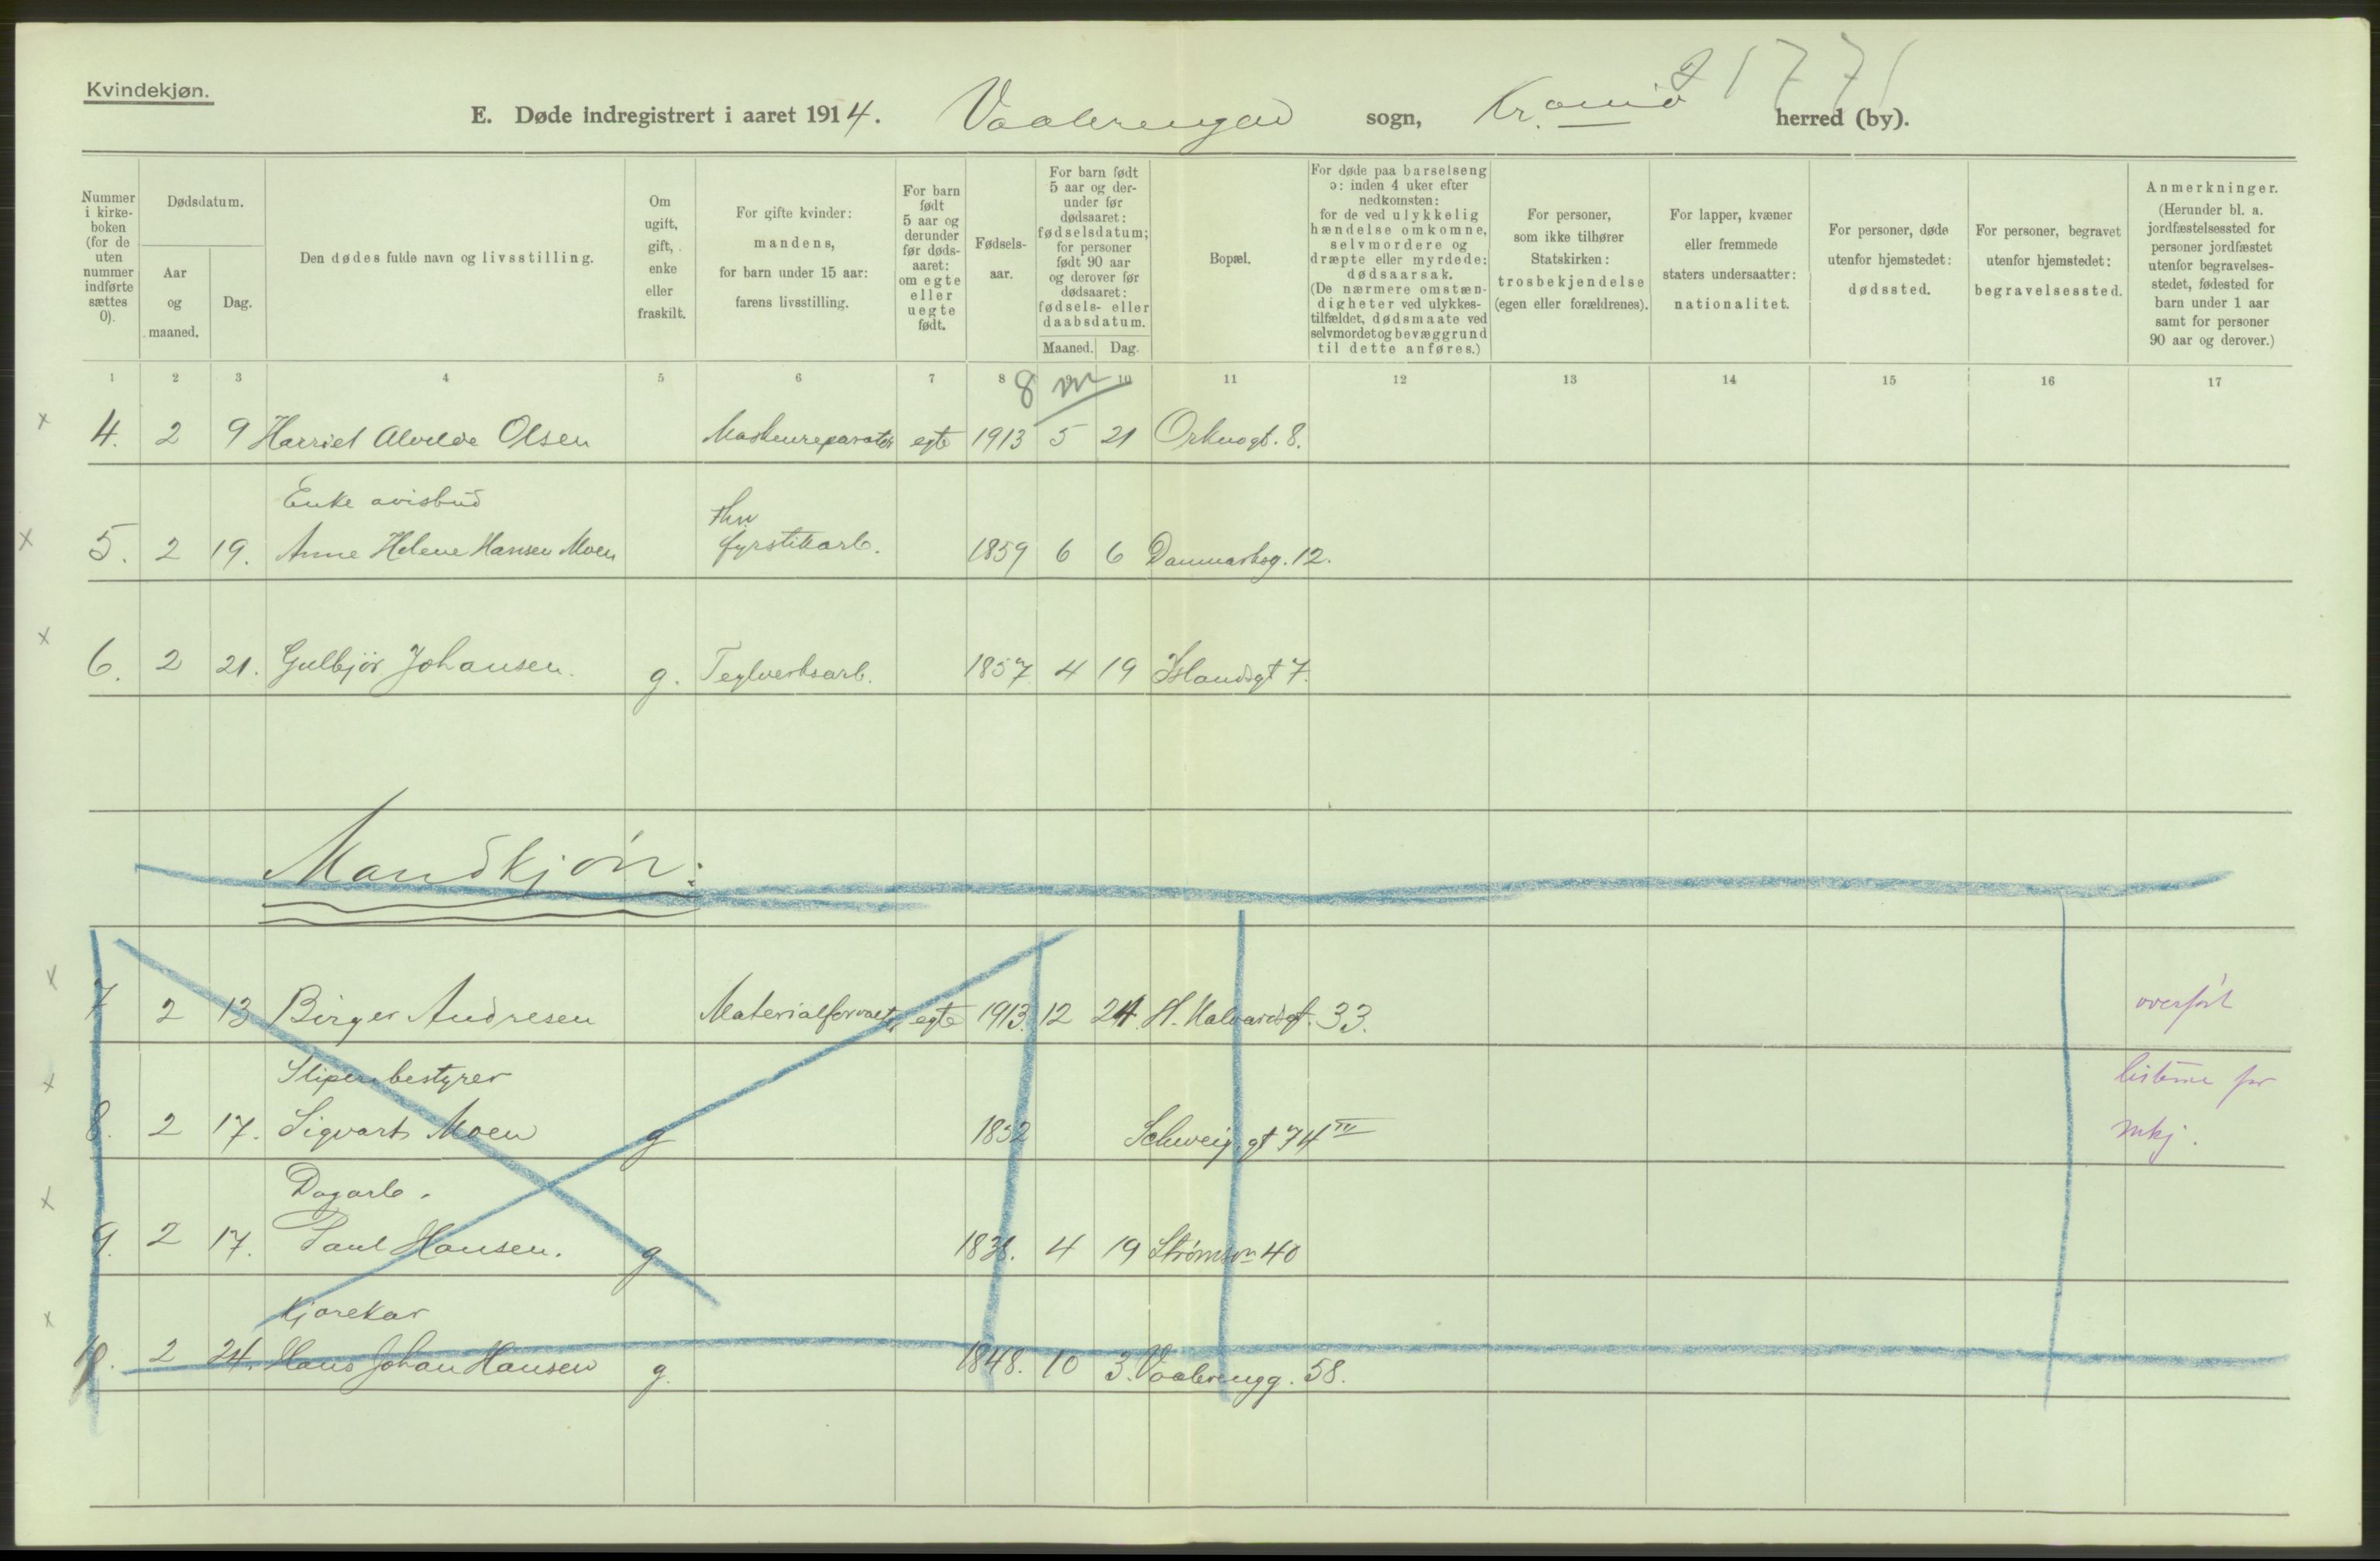 21771
Kvindekjøn.
E. Døde indregistrert i aaret 1914. Vaalerengen sogn, Kr.ania herred (by).
Nummer i kirke- boken (for de uten nummer indførte sættes 0).
Dødsdatum.
Aar og maaned.
Dag.
Den dødes fulde navn og livsstilling.
Om ugift, gift, enke eller fraskilt.
For gifte kvinder: mandens, for barn under 15 aar: farens livsstilling.
For barn født 5 aar og derunder før døds- aaret: om egte eller uegte født.
Fødsels- aar.
For barn født 5 aar og der- under før dødsaaret: fødselsdatum; for personer født 90 aar og derover før dødsaaret: fødsels- eller daabsdatum.
Maaned. Dag.
Bopæl.
For døde paa barselseng ɔ: inden 4 uker efter nedkomsten: for de ved ulykkelig hændelse omkomne, selvmordere og dræpte eller myrdede: dødsaarsak. (De nærmere omstæn- digheter ved ulykkes- tilfældet, dødsmaate ved selvmordet og bevæggrund til dette anføres.)
For personer, som ikke tilhører Statskirken: trosbekjendelse (egen eller forældrenes).
For lapper, kvæner eller fremmede staters undersaatter: nationalitet.
For personer, døde utenfor hjemstedet: dødssted.
For personer, begravet utenfor hjemstedet: begravelsessted.
Anmerkninger. (Herunder bl. a. jordfæstelsessted for personer jordfæstet utenfor begravelses- stedet, fødested for barn under 1 aar samt for personer 90 aar og derover.)
1 2 3 4 5 6 7 8 9 10 11 12 13 14 15 16 17
8 m
x 4. 2 9 Harriet Alvilde Olsen Maskinreparatør egte 1913 5 21 Orknøgt. 8.
Enke avisbud
x 5. 2 19. Anne Helene Hansen Moen fhv. fyrstikarb. 1859 6 6 Danmarksg. 12.
x 6. 2 21. Gulbjør Johansen. g. Teglverksarb. 1857 4 19 Islandsgt 7.
Mandkjøn:
x 7 2 13 Birger Andresen Materialforvalter egte 1913. 12 24. H. Halvardsgt. 33. overført
Sliperibestyrer listerne for
x 8. 2 17. Sigvart Moen g 1852 Schweig.gt 74 III mkj.
Dagarb.
x 9. 2 17. Paul Hansen. g 1838. 4 19 Strømsvn 40
Kjørekar
x 10. 2 24. Hans Johan Hansen g. 1848. 10 3. Vaalerengg. 58.